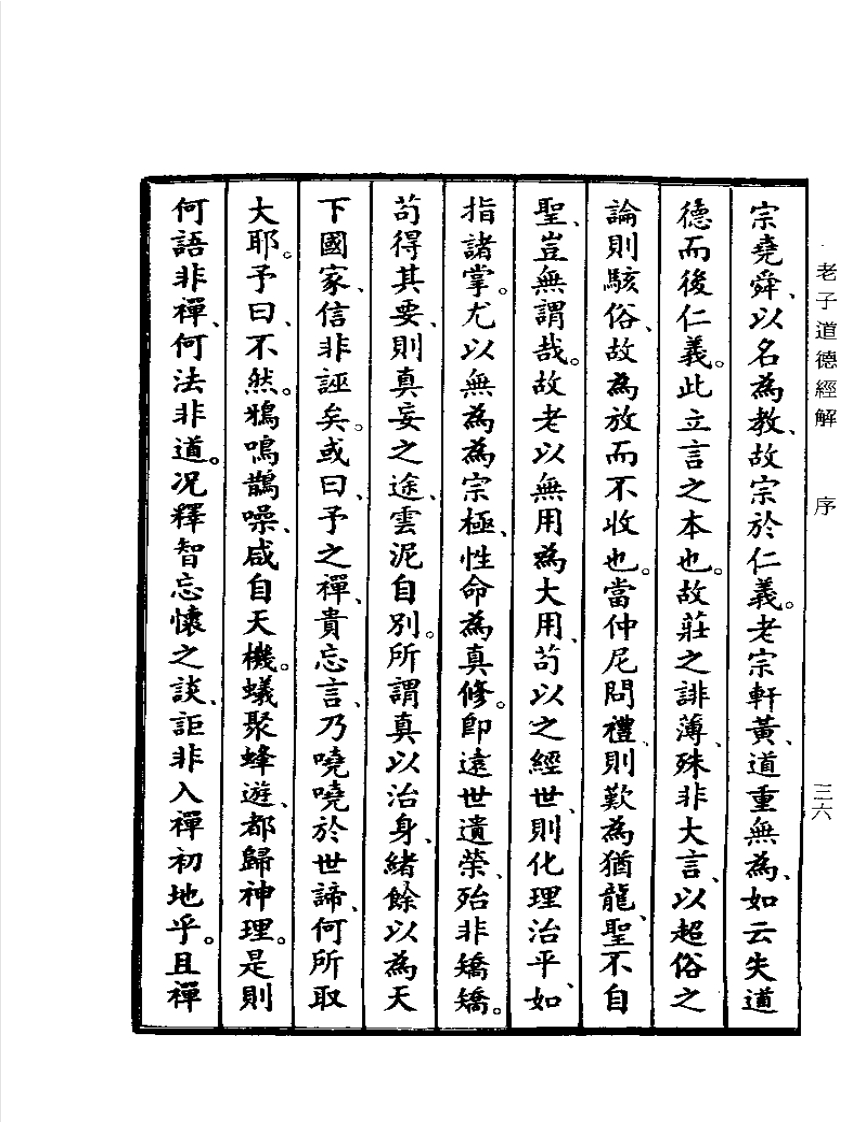 老子道德經解　序　三六
宗堯舜、以名為教、故宗於仁義。老宗軒黃、道重無為、如云失道
德而後仁義。此立言之本也。故莊之誹薄、殊非大言、以超俗之
論則駭俗、故為放而不收也。當仲尼問禮、則歎為猶龍、聖不自
聖、豈無謂哉。故老以無用為大用、苟以之經世、則化理治平、如
指諸掌。尤以無為為宗極、性命為真修。即遠世遺榮、殆非矯矯。
苟得其要、則真妄之途、雲泥自別。所謂真以治身、緒餘以為天
下國家、信非誣矣。或曰、予之禪、貴忘言、乃嘵嘵於世諦、何所取
大耶。予曰、不然。鴉鳴鵲噪、咸自天機。蟻聚蜂遊、都歸神理。是則
何語非禪、何法非道。况釋智忘懷之談、詎非入禪初地乎。且禪